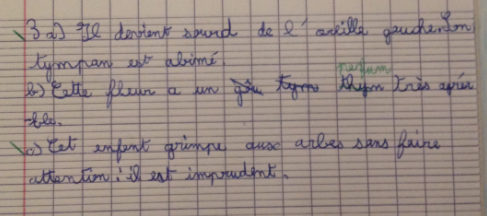 3 a) Il devient sourd de l'oreille gauche. Son
tympan est abimé.
parfum
b) Cette fleur a un tym thym très agréa
-ble.
c) Cet enfant grimpe aux arbes sans faire
attention : il est imprudent.